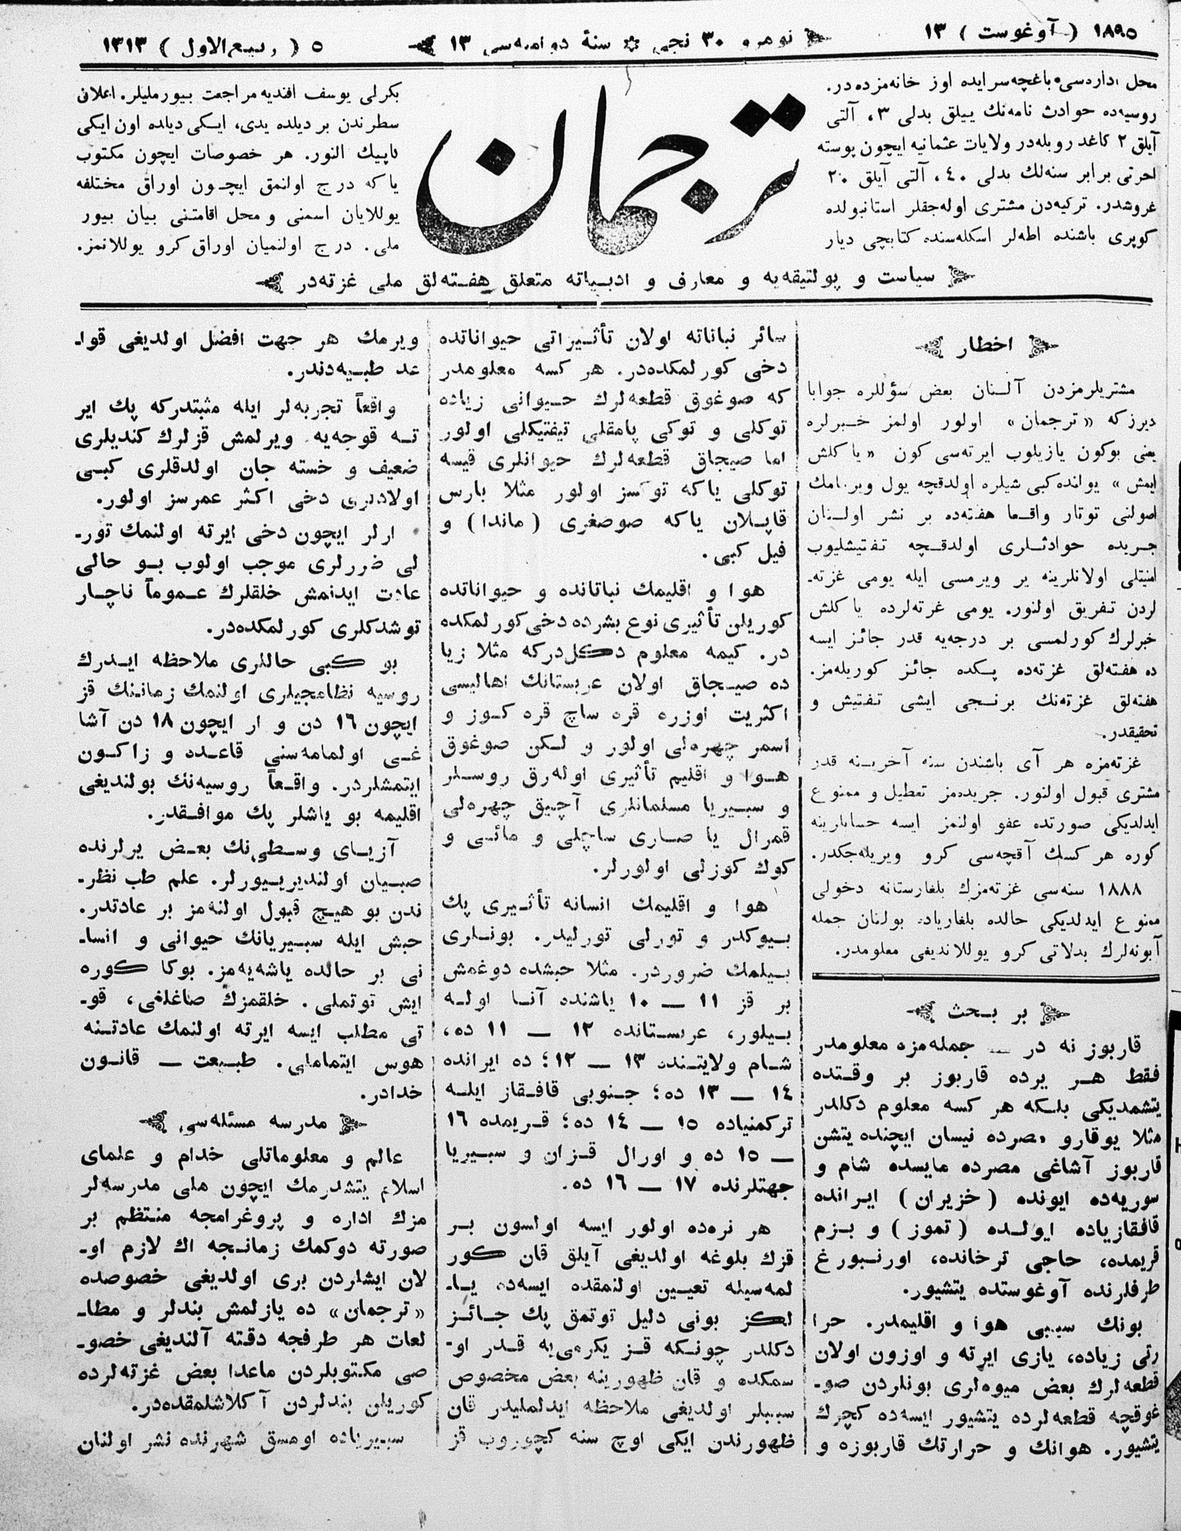 ١٨٩٥ ( آوغوست ) ١٣
نومرو ٣٠ نجی ✡ سنهٔ دوامیه‌سی ١٣
٥ ( ربیع الاول ) ١٣١٣
محل اداره‌سی باغچه‌سرایده اوز خانه‌مزده‌در.
روسیه‌ده حوادث نامه‌نك ییللق بدلی ٣، آلتی
آیلق ٢ كاغد روبله‌در ولایات عثمانیه ایچون پوسته
اجرتی برابر سنه‌لك بدلی ٤٠، آلتی آیلق ٢٠
غروشدر. تركیه‌دن مشتری اوله‌جقلر استانبولده
كوپری باشنده اطه‌لر اسكله‌سنده كتابچی دیار
ترجمان
بكرلی یوسف افندیه مراجعت بیورملیلر. اعلان
سطرندن بر دیلده یدی، ایكی دیلده اون ایكی
كاپیك النور. هر خصوصات ایچون مكتوب
یاكه درج اولنمق ایچون اوراق مختلفه
یوللایان اسمنی و محل اقامتنی بیان بیور
ملی. درج اولنمیان اوراق كرو یوللانمز.
سیاست و پولتیقه‌یه و معارف و ادبیاته متعلق هفته‌لق ملی غزته‌در
اخطار
مشتریلرمزدن آلنان بعض سؤللره جوابا
دیرزكه «ترجمان» اولور اولمز خبرلره
یعنی بوكون یازیلوب ایرته‌سی كون «یاكلش
ایمش» یولنده‌كبی شیلره اولدقچه یول ویرمامك
اصولنی توتار واقعا هفته‌ده بر نشر اولنان
جریده حوادثلری اولدقچه تفتیشلیوب
امنیتلی اولانلرینه یر ویرمسی ایله یومی غزته‌ـ
لردن تفریق اولنور. یومی غزته‌لرده یاكلش
خبرلرك كورلمسی بر درجه‌یه قدر جائز ایسه
ده هفته‌لق غزته‌ده پكده جائز كوریله‌مز.
هفته‌لق غزته‌نك برنجی ایشی تفتیش و
تحقیقدر.
غزته‌مزه هر آی باشندن سنه آخرینه قدر
مشتری قبول اولنور. جریده‌مز تعطیل و ممنوع
ایدلدیكی صورتده عفو اولنمز ایسه حسابارینه
كوره هركسك آقچه‌سی كرو ویریله‌جكدر.
١٨٨٨ سنه‌سی غزته‌مزك بلغارستانه دخولی
ممنوع ایدلدیكی حالده بلغاریاده بولنان جمله
آبونه‌لرك بدلاتی كرو یوللاندیغی معلومدر.
بر بحث
قاربوز نه در — جمله‌مزه معلومدر
فقط هر یرده قاربوز بر وقتده
یتشمدیكی بلكه هر كسه معلوم دكلدر
مثلا یوقارو مصرده نیسان ایچنده یتشن
قاربوز آشاغی مصرده مایسده شام و
سوریه‌ده ایونده (خزیران) ایرانده
قافقازیاده ایولده (تموز) و بزم
قریمده، حاجی ترخانده، اورنبورغ
طرفلرنده آوغوستده یتشیور.
بونك سببی هوا و اقلیمدر. حرا
رتی زیاده، یازی ایرته و اوزون اولان
قطعه‌لرك بعض میوه‌لری بونلردن صوـ
غوقچه قطعه‌لرده یتشیور ایسه‌ده كچرك
یتشیور. هوانك و حرارتك قاربوزه و
سائر نباتاته اولان تأثیراتی حیواناتده
دخی كورلمكده‌در. هر كسه معلومدر
كه صوغوق قطعه‌لرك حیوانی زیاده
توكلی و توكی پامقلی تیفتیكلی اولور
اما صیجاق قطعه‌لرك حیوانلری قیسه
توكلی یاكه توكسز اولور مثلا بارس
قاپلان یاكه صوصغری (ماندا) و
فیل كبی.
هوا و اقلیمك نباتاتده و حیواناتده
كوریلن تأثیری نوع بشرده دخی كورلمكده
در. كیمه معلوم دكل‌دركه مثلا زیا
ده صیجاق اولان عربستانك اهالیسی
اكثریت اوزره قره ساچ قره كوز و
اسمر چهره‌لی اولور و لكن صوغوق
هوا و اقلیم تأثیری اوله‌رق روسلر
و سبیریا مسلمانلری آچیق چهره‌لی
قمرال یا صاری ساچلی و مائی و
كوك كوزلی اولورلر.
هوا و اقلیمك انسانه تأثیری پك
بیوكدر و تورلی تورلیدر. بونلری
بیلمك ضروردر. مثلا حبشده دوغمش
بر قز ١١ — ١٠ یاشنده آنا اوله
بیلور، عربستانده ١٢ — ١١ ده،
شام ولایتنده ١٣ — ١٢؛ ده ایرانده
١٤ — ١٣ ده؛ جنوبی قافقاز ایله
تركمنیاده ١٥ — ١٤ ده؛ قریمده ١٦
— ١٥ ده و اورال قزان و سبیریا
جهتلرنده ١٧ — ١٦ ده.
هر نره‌ده اولور ایسه اولسون بر
قزك بلوغه اولدیغی آیلق قان كور
لمه‌سیله تعیین اولنمقده ایسه‌ده یاـ
لكز بونی دلیل توتمق پك جائز
دكلدر چونكه قز یكرمی‌یه قدر اوـ
سمكده و قان ظهورینه بعض مخصوص
سببلر اولدیغی ملاحظه ایدلملیدر قان
ظهورندن ایكی اوچ سنه كچوروب قز
ویرمك هر جهت افضل اولدیغی قواـ
عد طبیه‌دندر.
واقعاً تجربه‌لر ایله مثبتدركه پك ایر
ته قوجه‌یه ویرلمش قزلرك كندیلری
ضعیف و خسته جان اولدقلری كبی
اولادلری دخی اكثر عمرسز اولور.
ارلر ایچون دخی ایرته اولنمك تورـ
لی ضررلری موجب اولوب بو حالی
عادت ایدنمش خلقلرك عموماً ناچار
توشدكلری كورلمكده‌در.
بو كبی حاللری ملاحظه ایدرك
روسیه نظامجیلری اولنمك زماننك قز
ایچون ١٦ دن و ار ایچون ١٨ دن آشا
غی اولمامه‌سنی قاعده و زاكون
ایتمشلردر. واقعاً روسیه‌نك بولندیغی
اقلیمه بو یاشلر پك موافقدر.
آزیای وسطی‌نك بعض یرلرنده
صبیان اولندیریيورلر. علم طب نظرـ
ندن بو هیچ قبول اولنه‌مز بر عادتدر.
حبش ایله سبیریانك حیوانی و انساـ
نی بر حالده یاشه‌یه‌مز. بوكا كوره
ایش توتملی. خلقمزك صاغلغی، قوـ
تی مطلب ایسه ایرته اولنمك عادتنه
هوس ایتماملی. طبیعت — قانون
خدادر.
مدرسه مسئله‌سی
عالم و معلوماتلی خدام و علمای
اسلام یتشدرمك ایچون ملی مدرسه‌لر
مزك اداره و پروغرامجه منتظم بر
صورته دوكمك زمانجه اك لازم اوـ
لان ایشلردن بری اولدیغی خصوصده
«ترجمان» ده یازلمش بندلر و مطاـ
لعات هر طرفجه دقته آلندیغی خصوـ
صی مكتوبلردن ماعدا بعض غزته‌لرده
كوریلن بندلردن آكلاشلمقده‌در.
سبیریاده اومسق شهرنده نشر اولنان